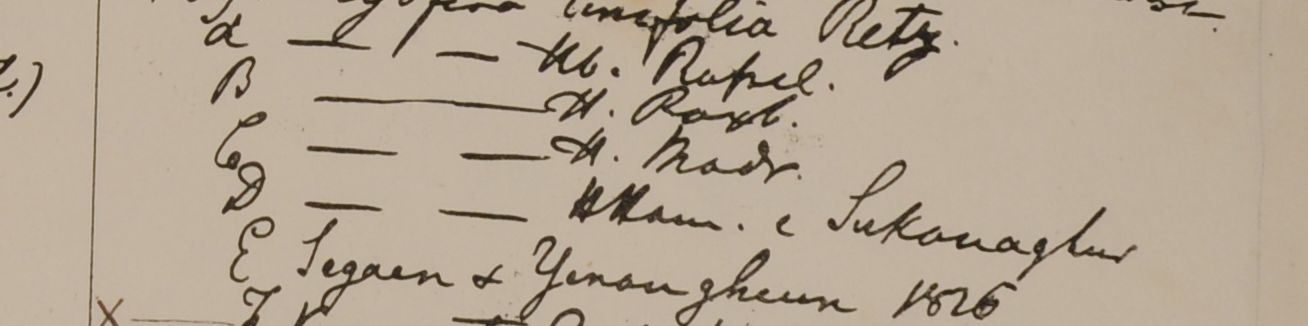 linifolia Retz.
a — — Hb. Russel.
B — H. Roxb.
C — — H. Madr.
D — — HHam. e Sukanaghur
E Segaen & Yenangheun 1826